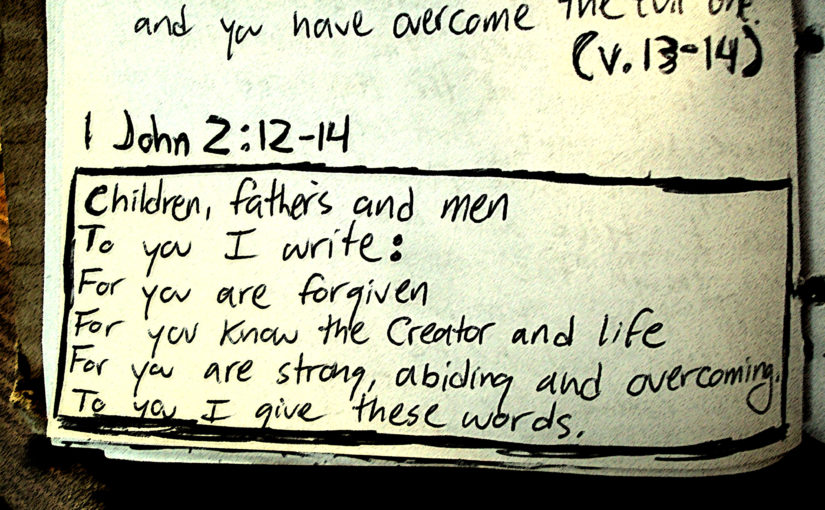 and you have overcome the evil one.
(v. 13-14)
1 John 2:12-14
Children, fathers and men
To you I write:
For you are forgiven
For you know the Creator and life
For you are strong, abiding and overcoming.
To you I give these words.